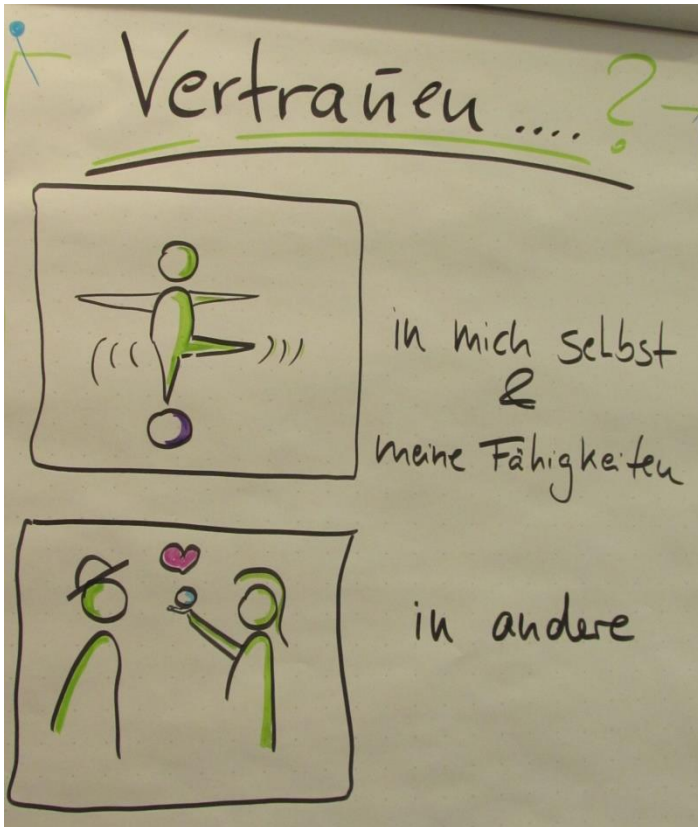 Vertrauen .... ?
in mich selbst
&
meine Fähigkeiten
in andere